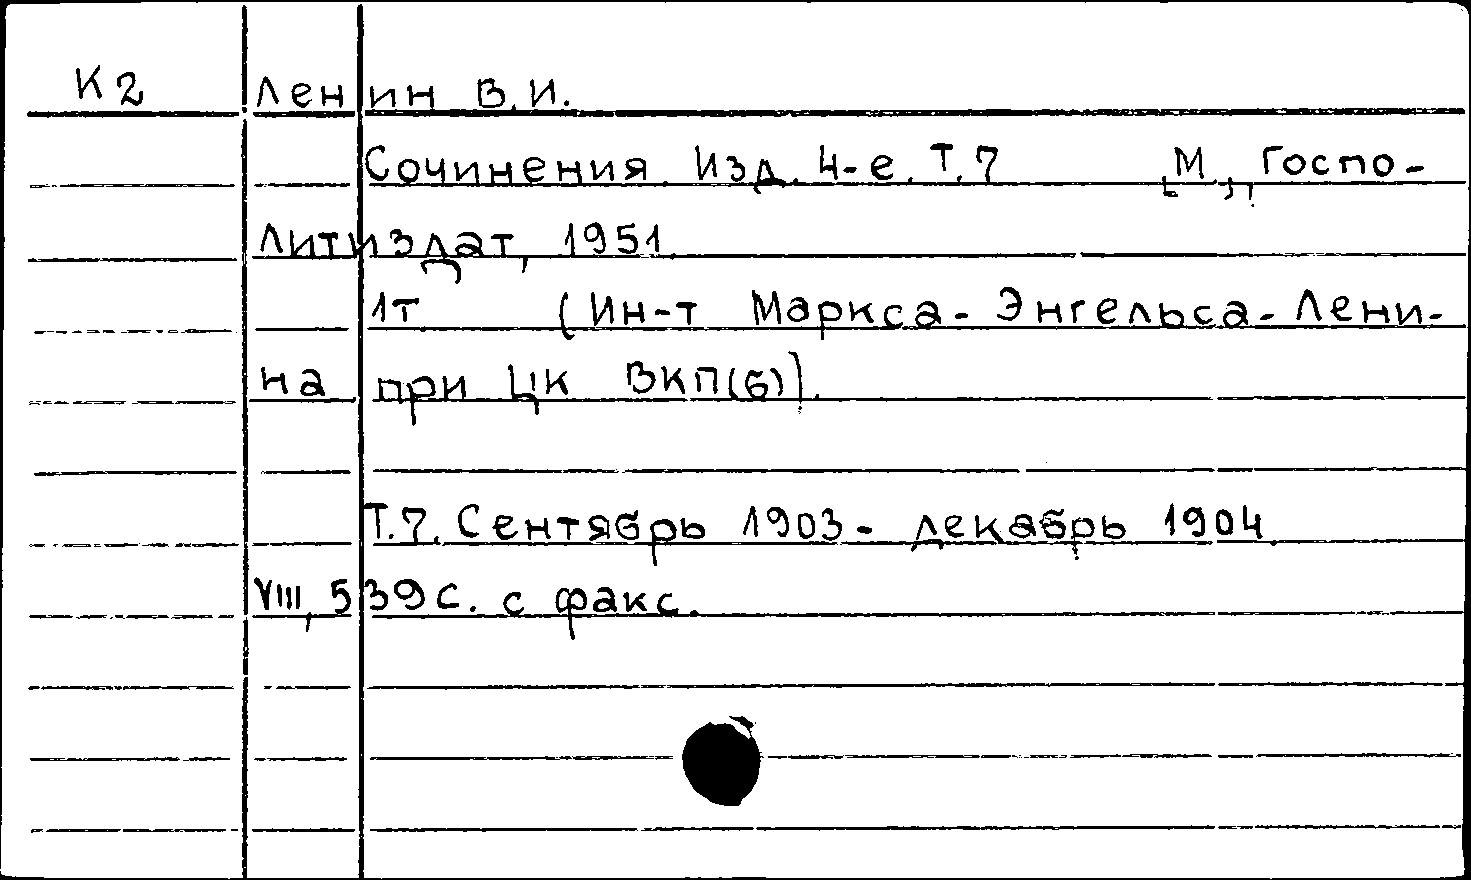 К2 Ленин В.И.
Сочинения. Изд. 4-е. Т.7 М., Госпо-
литиздат, 1951.
1т (Ин-т Маркса-Энгельса-Лени-
на при ЦК ВКП(б)).
Т.7. Сентябрь 1903- декабрь 1904.
VIII, 539с. с факс.